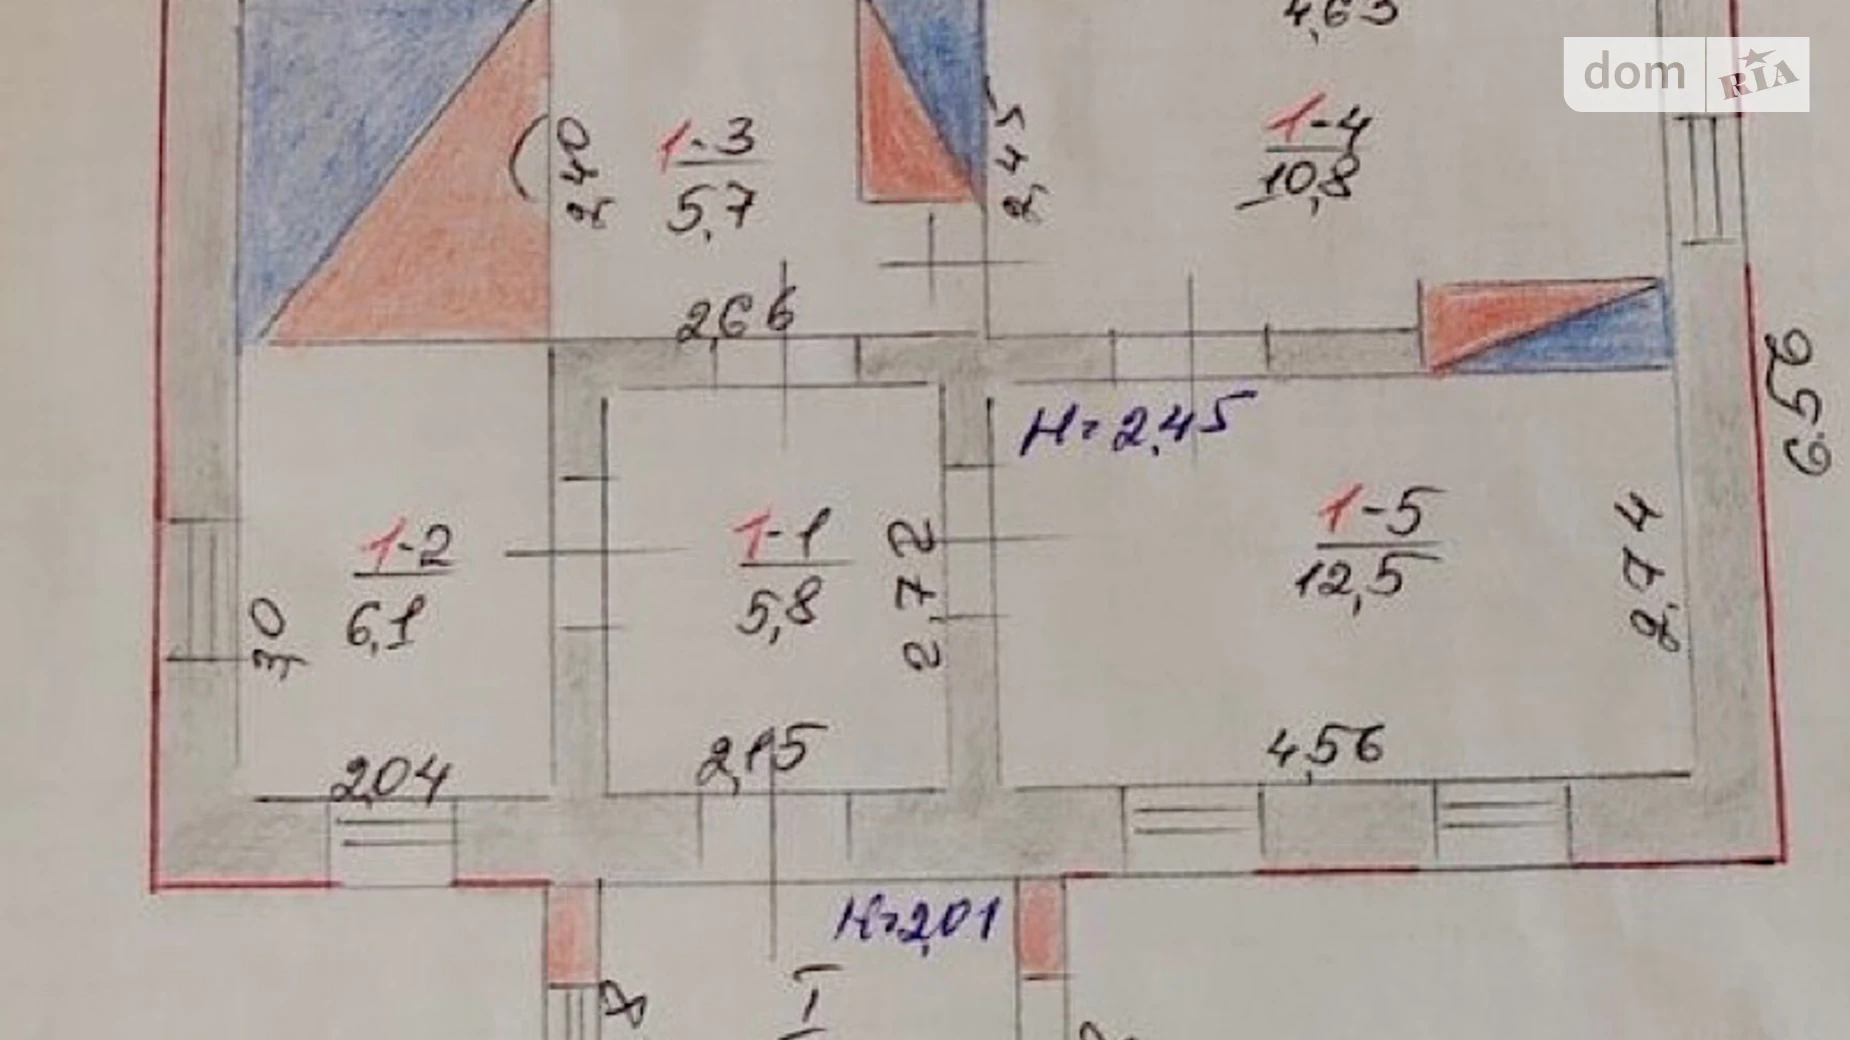 4,63
dom RIA
2,40
1-3
5,7
2,45
1-4
10,8
2,66
H=2,45
6,56
1-2
6,1
3,0
1-1
5,8
2,72
1-5
12,5
2,74
2,04
2,15
4,56
H=2,01
I